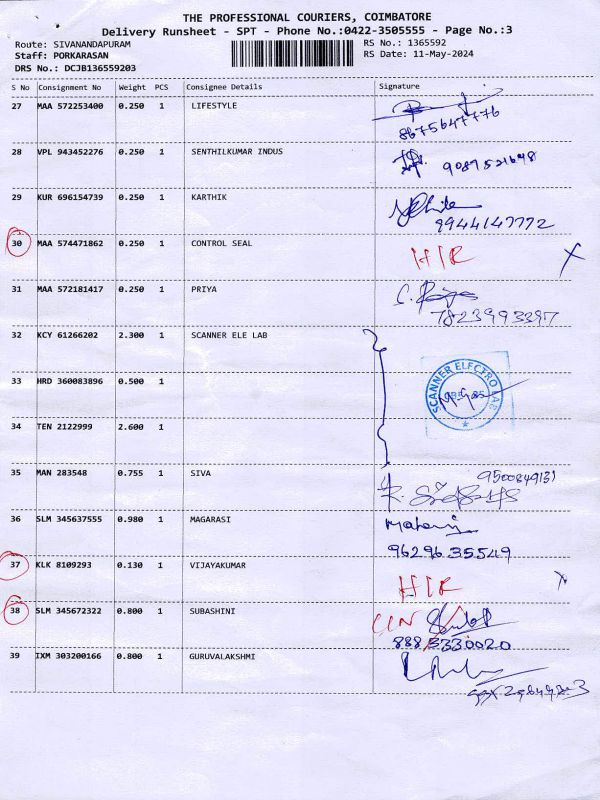 THE PROFESSIONAL COURIERS, COIMBATORE
Delivery Runsheet - SPT - Phone No.:0422-3505555 - Page No.:3
Route: SIVANANDAPURAM RS No.: 1365592
Staff: PORKARASAN RS Date: 11-May-2024
DRS No.: DCJB136559203
S No Consignment No Weight PCS Consignee Details Signature
27 MAA 572253400 0.250 1 LIFESTYLE
8675647776
28 VPL 943452276 0.250 1 SENTHILKUMAR INDUS
9089521648
29 KUR 696154739 0.250 1 KARTHIK
9944147772
30 MAA 574471862 0.250 1 CONTROL SEAL HIR X
31 MAA 572181417 0.250 1 PRIYA
7823993397
32 KCY 61266202 2.300 1 SCANNER ELE LAB
SCANNER ELECTRO LAB
33 HRD 360083896 0.500 1
34 TEN 2122999 2.600 1
35 MAN 283548 0.755 1 SIVA 9500849131
36 SLM 345637555 0.980 1 MAGARASI
9629635549
37 KLK 8109293 0.130 1 VIJAYAKUMAR HIR X
38 SLM 345672322 0.800 1 SUBASHINI
8883330020
39 IXM 303200166 0.800 1 GURUVALAKSHMI